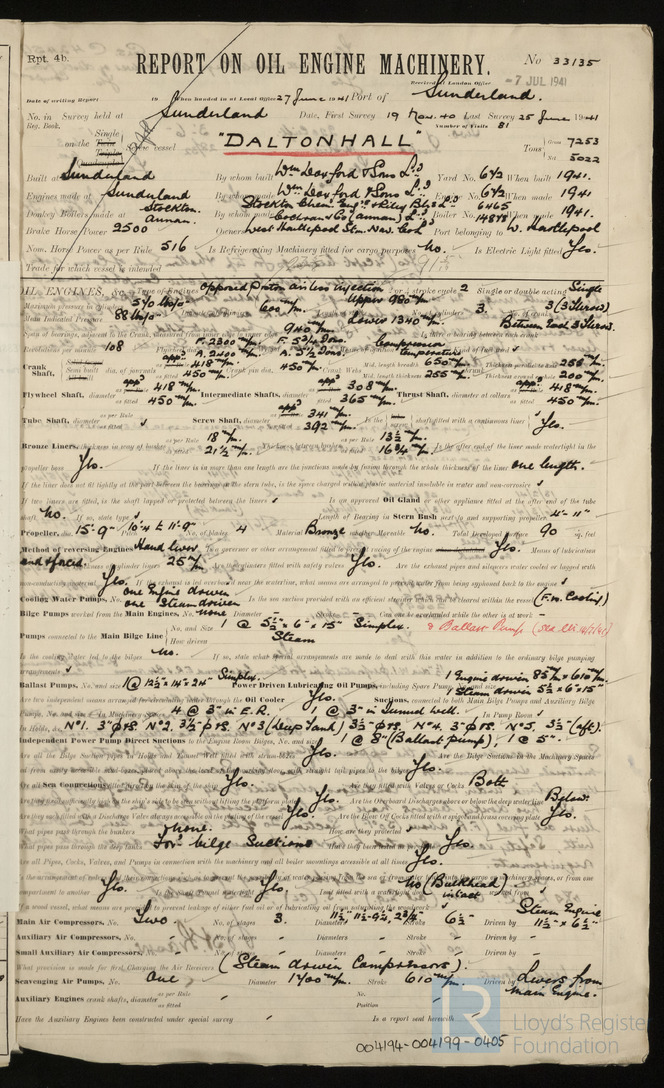 Rpt. 4b.
REPORT ON OIL ENGINE MACHINERY.
No 33135
Received at London Office -7 JUL 1941
Date of writing Report 19 When handed in at Local Office 27 June 1941 Port of Sunderland.
No. in Survey held at Sunderland Date, First Survey 19 Nov. 40 Last Survey 25 June 1941
Reg. Book. Number of Visits 81
on the Single Screw vessel "DALTONHALL" Tons Gross 7253
Net 5022
Built at Sunderland By whom built Wm Doxford & Sons Ld Yard No. 672 When built 1941.
Engines made at Sunderland By whom made Wm Doxford & Sons Ld Engine No. 672 When made 1941.
Donkey Boilers made at Stockton. Annan. By whom made Stockton Chem. Engrs & Riley Blrs Ld 6465
Cochran & Co (Annan) Ld Boiler No. 14878 When made 1941.
Brake Horse Power 2500 Owners West Hartlepool Stm. Nav. Co Ld Port belonging to W. Hartlepool
Nom. Horse Power as per Rule 516 Is Refrigerating Machinery fitted for cargo purposes No. Is Electric Light fitted Yes.
Trade for which vessel is intended
OIL ENGINES, &c. Type of Engines Opposed Piston airless injection 2 or 4 stroke cycle 2 Single or double acting Single
600 m/m. Upper 980 m/m 3. 3 (3 Throw)
88 lbs/o" 940 m/m Lower 1340 m/m. Between Each 3 Throw.
Revolutions per minute 108 F. 2300 m/m. F. 5 3/4 Tons. Compression
A. 2400 m. A. 5 1/2 Tons. temperature
Crank Shaft, dia. of journals appd 418 m/m as fitted 450 m/m Crank pin dia. 450 m/m. Crank Webs Mid. length breadth 650 m/m. Thickness parallel to axis 255 m/m.
Mid. length thickness 255 m/m. 200 m/m.
Flywheel Shaft, diameter appd 418 m/m as fitted 450 m/m. Intermediate Shafts, diameter appd 308 m/m as fitted 365 m/m. Thrust Shaft, diameter at collars appd 418 m/m as fitted 450 m/m.
Tube Shaft, diameter as per Rule as fitted Screw Shaft, diameter appd 341 m/m. as fitted 392 m/m. Is the shaft fitted with a continuous liner Yes.
Bronze Liners, thickness in way of bushes as per Rule 18 m/m. as fitted 21 1/2 m/m. Thickness between bushes as per Rule 13 1/2 m/m. as fitted 16 3/4 m/m. Is the after end of the liner made watertight in the
propeller boss Yes. If the liner is in more than one length are the junctions made by fusion through the whole thickness of the liner one length.
If the liner does not fit tightly at the part between the bearings in the stern tube, is the space charged with a plastic material insoluble in water and non-corrosive
If two liners are fitted, is the shaft lapped or protected between the liners Is an approved Oil Gland or other appliance fitted at the after end of the tube
shaft No. If so, state type Length of Bearing in Stern Bush next to and supporting propeller 4'-11"
Propeller, dia. 15'-9" Pitch 10'-4 to 11'-9" No. of blades 4 Material Bronze whether Moveable No. Total Developed Surface 90 sq. feet
Method of reversing Engines Hand lever Is a governor or other arrangement fitted to prevent racing of the engine Yes. Means of lubrication
and forced. 25 m/m. Are the cylinders fitted with safety valves Yes. Are the exhaust pipes and silencers water cooled or lagged with
non-conducting material Yes. If the exhaust is led overboard near the waterline, what means are arranged to prevent water being syphoned back to the engine
Cooling Water Pumps, No. one Engine driven one Steam driven Is the sea suction provided with an efficient strainer which can be cleared within the vessel (F.W. Cooling)
Bilge Pumps worked from the Main Engines, No. none Diameter Stroke Can one be overhauled while the other is at work
Pumps connected to the Main Bilge Line No. and Size 1 @ 5 1/2" x 6" x 15" Simplex. & Ballast Pump
How driven Steam
Is the cooling water led to the bilges No. If so, state what special arrangements are made to deal with this water in addition to the ordinary bilge pumping
arrangements
Ballast Pumps, No. and size 1 @ 12 1/2" x 14" x 24" Simplex. Power Driven Lubricating Oil Pumps, including Spare Pump, 1 Engine driven 85 m/m x 610 m/m.
1 Steam driven 5 1/2 x 6" x 15"
Are two independent means arranged for circulating water through the Oil Cooler Yes. Suctions, connected to both Main Bilge Pumps and Auxiliary Bilge
Pumps, No. and size:—In Machinery Spaces 4 @ 3" in E.R. 1 @ 3" in Tunnel well. In Pump Room
In Holds, &c. No 1. 3" P&S. No 2. 3 1/2" P&S. No 3 (Deep Tank) 3 1/2" P&S. No 4. 3" P&S. No 5. 3 1/2" (aft).
Independent Power Pump Direct Suctions to the Engine Room Bilges, No. and size 1 @ 8" (Ballast pump), 1 @ 5".
Are all the Bilge Suction pipes in Holds and Tunnel Well fitted with strum-boxes Yes. Are the Bilge Suctions in the Machinery Spaces
led from easily accessible mud boxes, placed above the level of the working floor, with straight tail pipes to the bilges Yes.
Are all Sea Connections fitted direct on the skin of the ship Yes. Are they fitted with Valves or Cocks Both
Are they fixed sufficiently high on the ship's side to be seen without lifting the platform plates Yes. Are the Overboard Discharges above or below the deep water line Below.
Are they each fitted with a Discharge Valve always accessible on the plating of the vessel Yes. Are the Blow Off Cocks fitted with a spigot and brass covering plate Yes.
What pipes pass through the bunkers none. How are they protected
What pipes pass through the deep tanks For'd bilge Suctions Have they been tested as per Rule Yes.
Are all Pipes, Cocks, Valves, and Pumps in connection with the machinery and all boiler mountings accessible at all times Yes.
compartment to another Yes. Yes. No (Bulkhead) intact
If a wood vessel, what means are provided to prevent leakage of either fuel oil or of lubricating oil from saturating the woodwork
Main Air Compressors, No. Two No. of stages 3. Diameters 11 1/2"- 11"- 9 1/4, 2 3/4" Stroke 6 1/2" Driven by Steam Engine 11 1/2" x 6 1/2"
Auxiliary Air Compressors, No. No. of stages Diameters Stroke Driven by
Small Auxiliary Air Compressors, No. No. of stages Diameters Stroke Driven by
What provision is made for first Charging the Air Receivers (Steam driven Compressors).
Scavenging Air Pumps, No. One Diameter 1700 m/m. Stroke 610 m/m. Driven by Levers from Main Engine.
Auxiliary Engines crank shafts, diameter as per Rule as fitted No. Position
Have the Auxiliary Engines been constructed under special survey Is a report sent herewith
Lloyd's Register
Foundation
004194-004199-0405